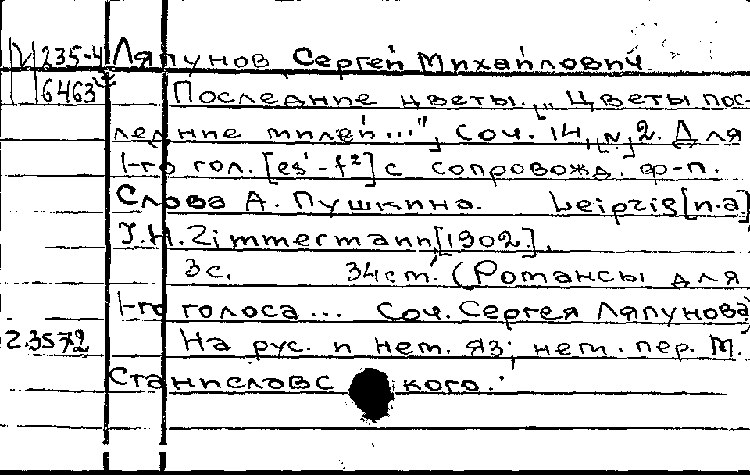 М 235-4 Ляпунов Сергей Михайлович
6463 Последние цветы. „Цветы пос-
ледние милей...", Соч. 14, [№] 2. Для
1-го гол. [es'-f²] с сопровожд. ф-п.
Слова А. Пушкина. Leipzig [и.а]
J.H. Zimmermann, [1902].
3с. 34см. (Романсы для
1-го голоса... Соч. Сергея Ляпунова)
2.3572 На рус. и нем. яз; нем. пер. М.
Станиславского.